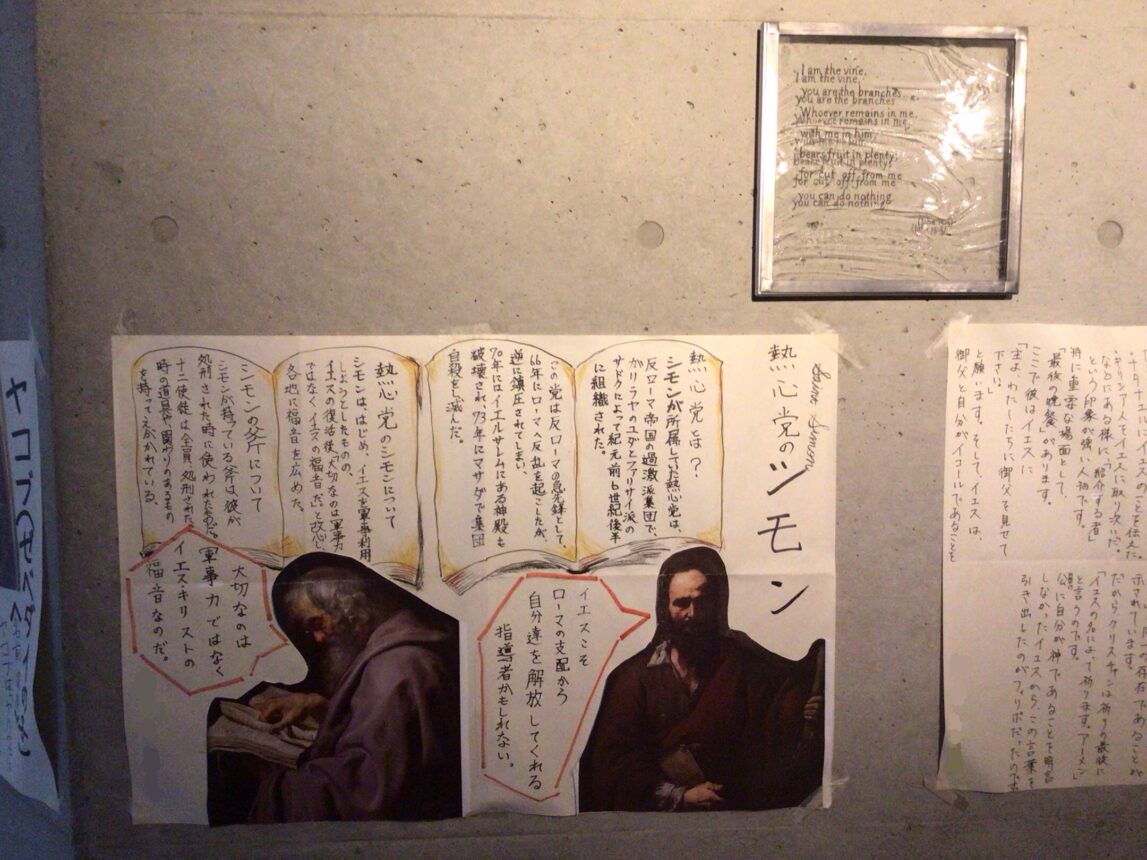 I am the vine,
you are the branches.
Whoever remains in me,
with me in him,
bears fruit in plenty;
for cut off from me
you can do nothing
Saint Simon
熱心党のシモン
熱心党とは?
シモンが所属していた熱心党は、
反ローマ帝国の過激派集団で、
ガリラヤのユダとファリサイ派の
サドクによって紀元前6世紀後半
に組織された。
この党は反ローマの急先鋒として、
66年にローマへ反乱を起こしたが、
逆に鎮圧されてしまい、
70年にはイエルサレムにある神殿も
破壊され、73年にマサダで集団
自殺をし滅んだ。
熱心党のシモンについて
シモンははじめ、イエスを軍事利用
しようとしたものの、
イエスの復活後「大切なのは軍事力
ではなく、イエスの福音だ」と改心、
各地に福音を広めた。
シモンの斧について
シモンが持っている斧は彼が
処刑された時に使われたもの
十二使徒は全員、処刑された
時の道具や関わりのあるもの
を持ってえがかれている。
イエスこそ
ローマの支配から
自分達を解放してくれる
指導者かもしれない。
大切なのは
軍事力ではなく
イエス・キリストの
福音なのだ。
という印象が強い人初です。
特に重要な場面として、
「最後の晩餐」があります。
ここで彼はイエスに
「主よ、わたしたちに御父を見せて
下さい。」
と願います。そして、イエスは、
御父と自分がイコールであることを
示されています。
だからクリスチャンは祈りの最後に
「イエスの名によって祈ります。アーメン」
と言うのです。
公に自分が神であることを明言
しなかったイエスから、この言葉を
引き出したのがフィリポだったのです
ヤコブ(ゼベダイの子)